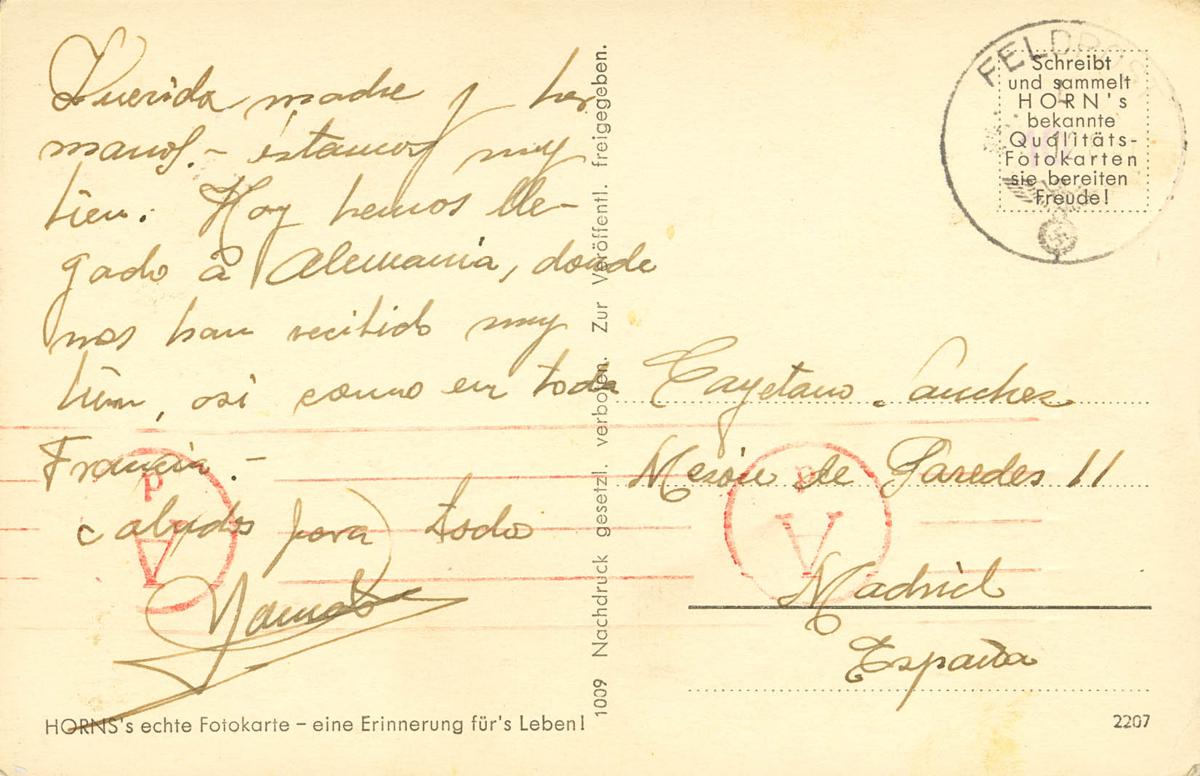 Querida madre y her
manos.- éstamos muy
bien. Hoy hemos lle-
gado á Alemania, donde
nos han recibido muy
bien, asi como en toda
Francia.-
Saludos para todos
HORNS's echte Fotokarte – eine Erinnerung für's Leben!
1009 Nachdruck gesetzl. verboten. Zur Veröffentl. freigegeben.
FELDPOST
Schreibt
und sammelt
HORN's
bekannte
Qualitäts-
Fotokarten
sie bereiten
Freude!
Cayetano Sanchez
Mesón de Paredes 11
Madrid
España
2207
P
A
P
A